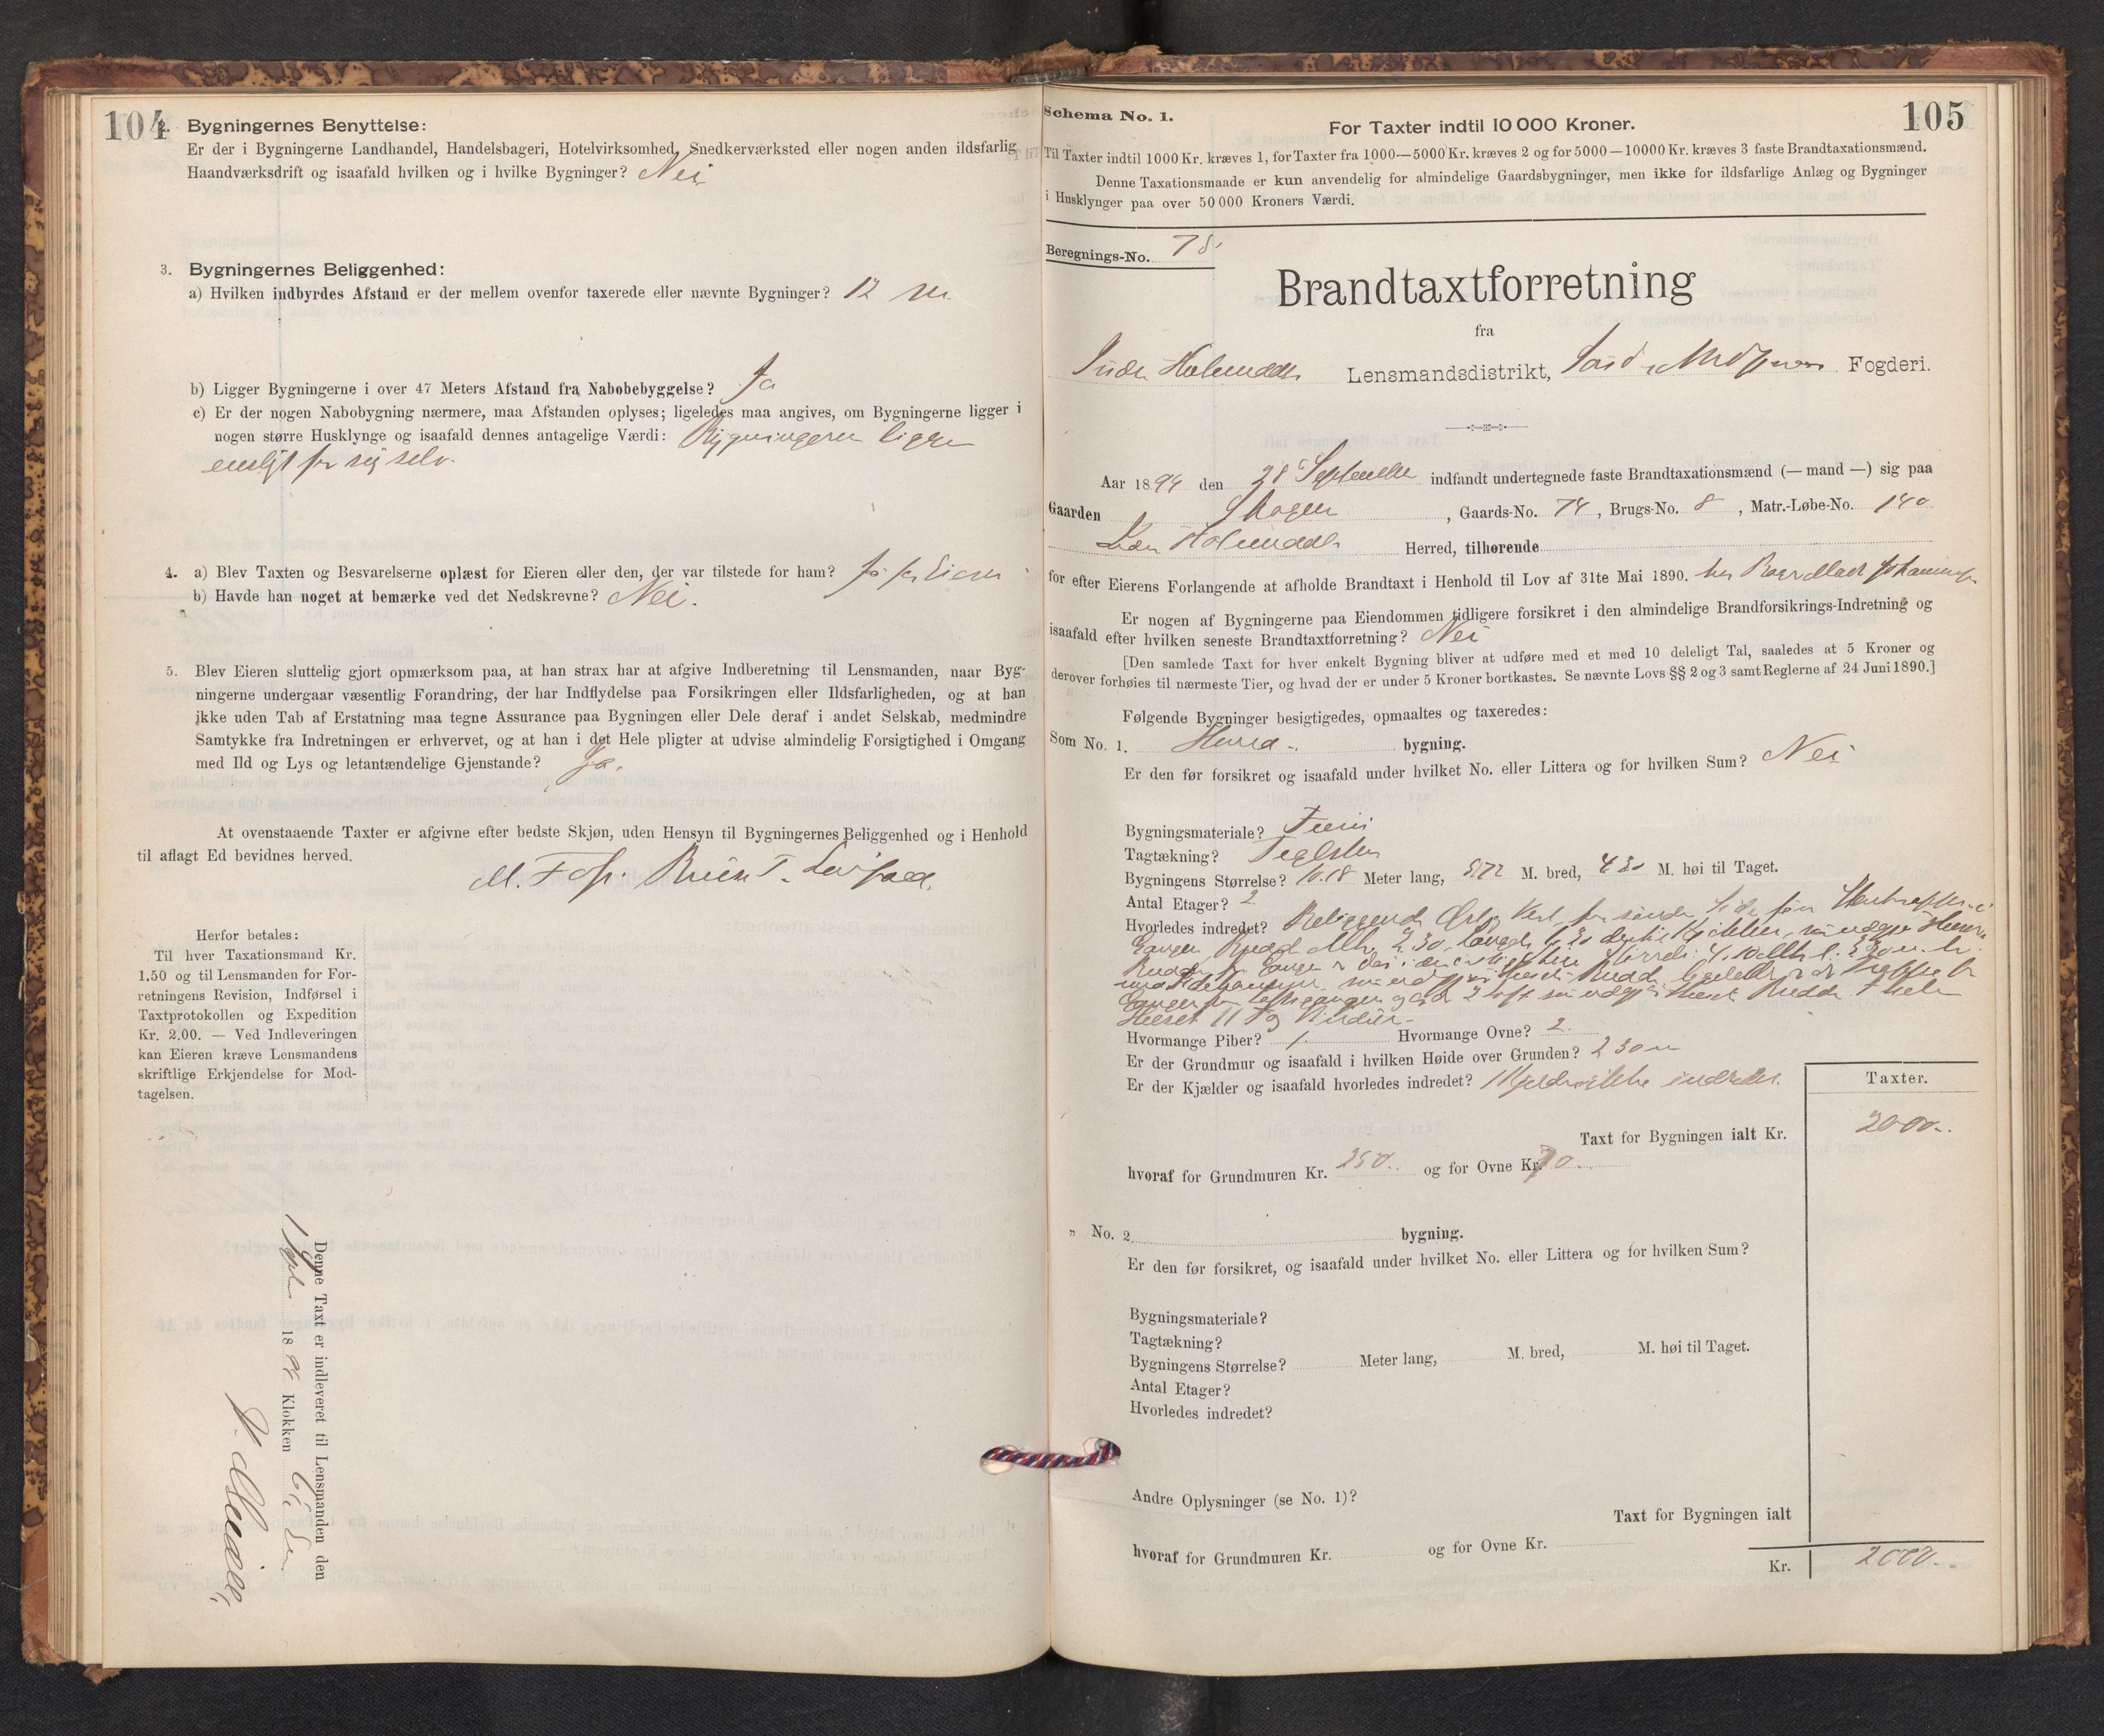 104
2. Bygningernes Benyttelse:
Er der i Bygningerne Landhandel, Handelsbageri, Hotelvirksomhed, Snedkerværksted eller nogen anden ildsfarlig
Haandværksdrift og isaafald hvilken og i hvilke Bygninger? Nei
3. Bygningernes Beliggenhed:
a) Hvilken indbyrdes Afstand er der mellem ovenfor taxerede eller nævnte Bygninger? 12 m
b) Ligger Bygningerne i over 47 Meters Afstand fra Nabobebyggelse? Ja
c) Er der nogen Nabobygning nærmere, maa Afstanden oplyses; ligeledes maa angives, om Bygningerne ligger i
nogen større Husklynge og isaafald dennes antagelige Værdi: Bygningerne ligger
ensligt for sig selv.
4. a) Blev Taxten og Besvarelserne oplæst for Eieren eller den, der var tilstede for ham? Ja for Eieren
b) Havde han noget at bemærke ved det Nedskrevne? Nei.
5. Blev Eieren sluttelig gjort opmærksom paa, at han strax har at afgive Indberetning til Lensmanden, naar Byg-
ningerne undergaar væsentlig Forandring, der har Indflydelse paa Forsikringen eller Ildsfarligheden, og at han
ikke uden Tab af Erstatning maa tegne Assurance paa Bygningen eller Dele deraf i andet Selskab, medmindre
Samtykke fra Indretningen er erhvervet, og at han i det Hele pligter at udvise almindelig Forsigtighed i Omgang
med Ild og Lys og letantændelige Gjenstande? Ja.
At ovenstaaende Taxter er afgivne efter bedste Skjøn, uden Hensyn til Bygningernes Beliggenhed og i Henhold
til aflagt Ed bevidnes herved.
Herfor betales:
Til hver Taxationsmand Kr.
1.50 og til Lensmanden for For-
retningens Revision, Indførsel i
Taxtprotokollen og Expedition
Kr. 2.00. — Ved Indleveringen
kan Eieren kræve Lensmandens
skriftlige Erkjendelse for Mod-
tagelsen.
Denne Taxt er indleveret til Lensmanden den
18 94 Klokken
105
Schema No. 1.
For Taxter indtil 10 000 Kroner.
Til Taxter indtil 1000 Kr. kræves 1, for Taxter fra 1000—5000 Kr. kræves 2 og for 5000—10000 Kr. kræves 3 faste Brandtaxationsmænd.
Denne Taxationsmaade er kun anvendelig for almindelige Gaardsbygninger, men ikke for ildsfarlige Anlæg og Bygninger
i Husklynger paa over 50 000 Kroners Værdi.
Beregnings-No. 78
Brandtaxtforretning
fra
Indre Holmedals Lensmandsdistrikt, Søndfjords Fogderi.
Aar 1894 den 28 September indfandt undertegnede faste Brandtaxationsmænd (— mand —) sig paa
Gaarden Skogen, Gaards-No. 74, Brugs-No. 8, Matr.-Løbe-No. 140
Indre Holmedals Herred, tilhørende
for efter Eierens Forlangende at afholde Brandtaxt i Henhold til Lov af 31te Mai 1890.
Er nogen af Bygningerne paa Eiendommen tidligere forsikret i den almindelige Brandforsikrings-Indretning og
isaafald efter hvilken seneste Brandtaxtforretning? Nei
[Den samlede Taxt for hver enkelt Bygning bliver at udføre med et med 10 deleligt Tal, saaledes at 5 Kroner og
derover forhøies til nærmeste Tier, og hvad der er under 5 Kroner bortkastes. Se nævnte Lovs §§ 2 og 3 samt Reglerne af 24 Juni 1890.]
Følgende Bygninger besigtigedes, opmaaltes og taxeredes:
Som No. 1. bygning.
Er den før forsikret og isaafald under hvilket No. eller Littera og for hvilken Sum? Nei
Bygningsmateriale?
Tagtækning? Teglsten
Bygningens Størrelse? 10.18 Meter lang, M. bred, 4 30 M. høi til Taget.
Antal Etager? 2
Hvorledes indredet?
Hvormange Piber? 1 Hvormange Ovne? 2.
Er der Grundmur og isaafald i hvilken Høide over Grunden? 2 30 m
Er der Kjælder og isaafald hvorledes indredet?
Taxter.
Taxt for Bygningen ialt Kr. 2000.
hvoraf for Grundmuren Kr. 250. og for Ovne Kr. 70.
„ No. 2 bygning.
Er den før forsikret, og isaafald under hvilket No. eller Littera og for hvilken Sum?
Bygningsmateriale?
Tagtækning?
Bygningens Størrelse? Meter lang, M. bred, M. høi til Taget.
Antal Etager?
Hvorledes indredet?
Andre Oplysninger (se No. 1)?
Taxt for Bygningen ialt
hvoraf for Grundmuren Kr. og for Ovne Kr.
Kr. 2000.